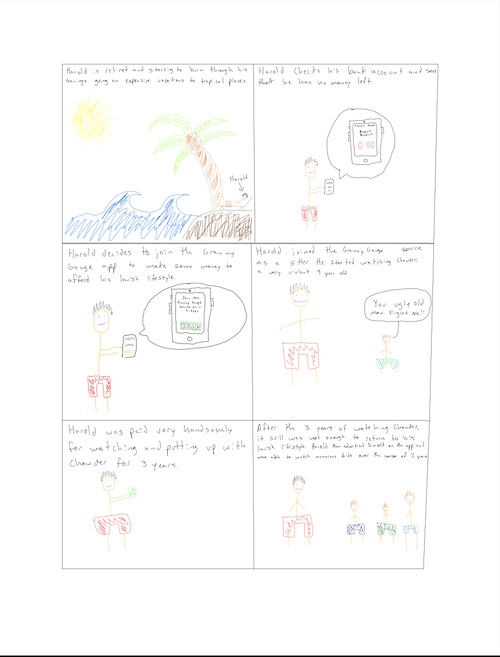 Harold is retired and starting to burn through his
savings going on expensive vacations to tropical places.
Harold
Harold Checks his bank account and sees
that he has no money left.
0.00
Harold decides to join the Granny
Gauge app to make some money to
afford his lavish lifestyle.
Join
JOIN
Harold joined the Granny Gauge service
as a sitter. He started watching Chowder,
a very violent 9 year old
You ugly old
man. Fight me!!
Harold was paid very handsomely
for watching and putting up with
Chowder for 3 years.
After the 3 years of watching Chowder,
it still was not enough to return to his
lavish lifestyle. Harold then advertised himself on the app and
was able to watch numerous kids over the course of 2 years